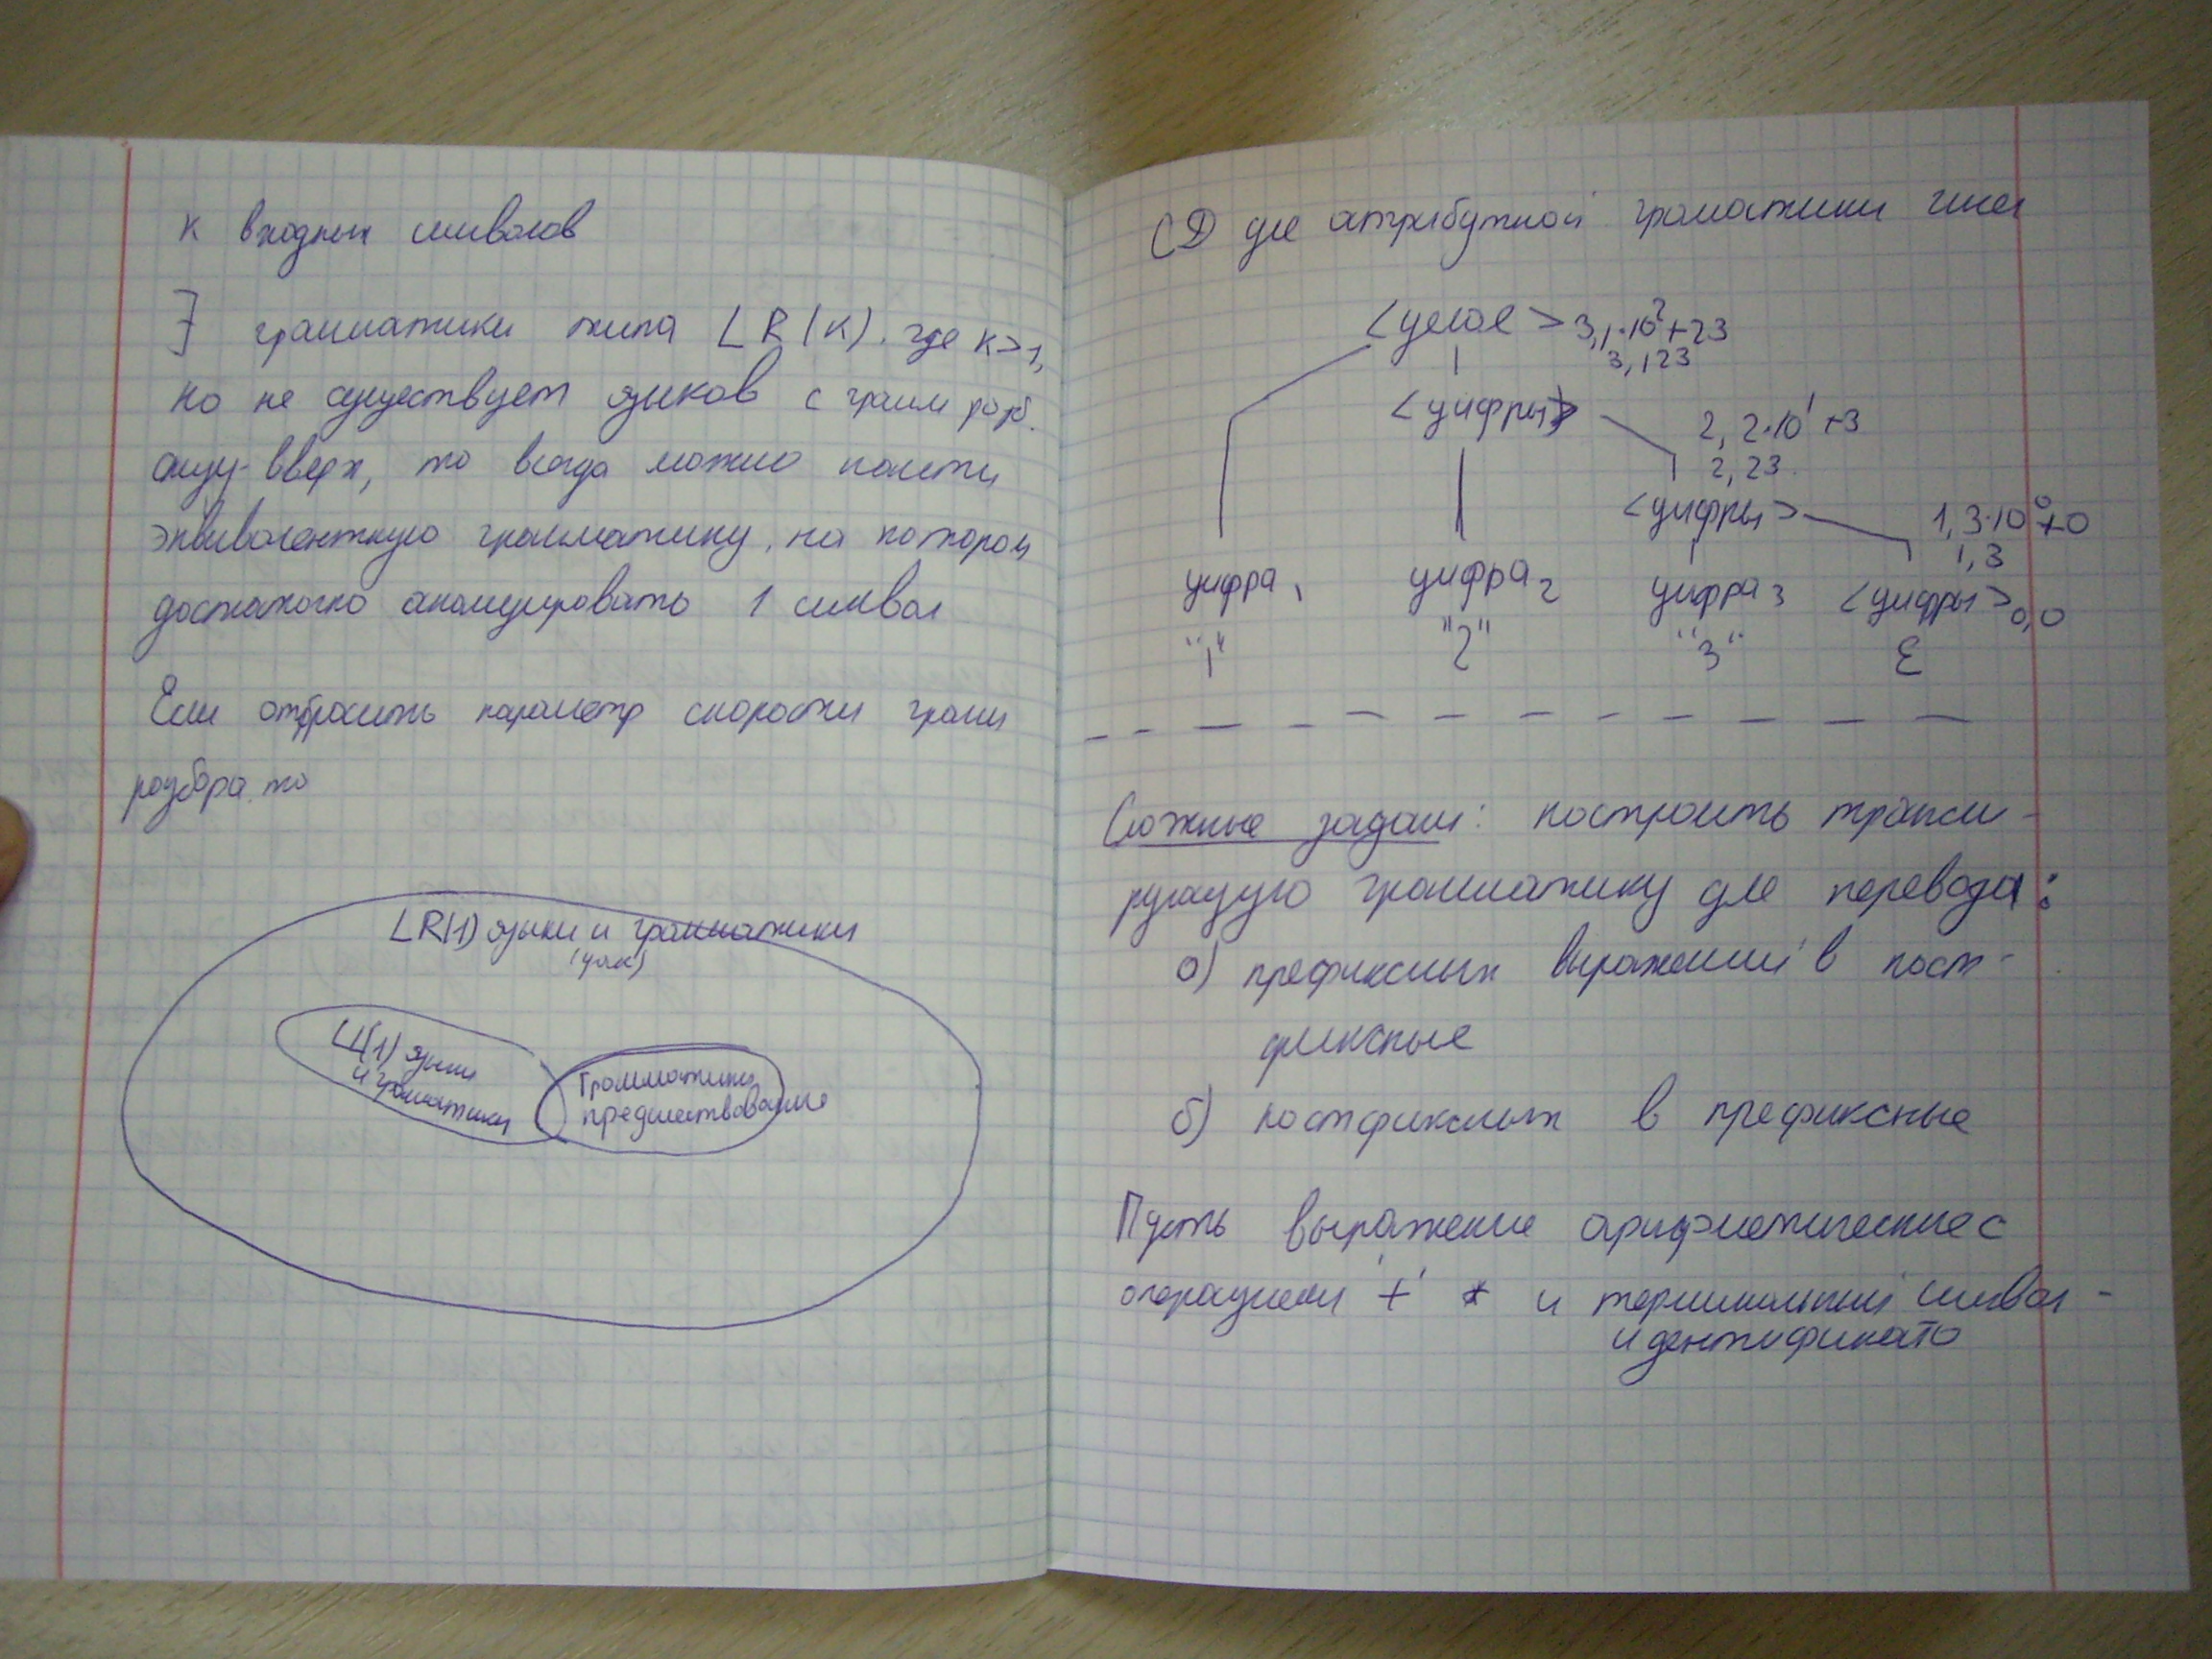 к входных символов
∃ грамматики типа LR(K), где K>1,
но не существует языков с грам разб.
снизу-вверх, то всегда можно найти
эквивалентную грамматику, на котором
достаточно анализировать 1 символ
Если отбросить параметр скорости грам
разбора, то
LR(1) языки и грамматики
LL(1) языки
и грамматики
Грамматики
предшествования
СД для атрибутной грамматики чисел
<целое> 3, 1·10² + 23
3, 123
<цифры>
2, 2·10¹ + 3
2, 23
<цифры>
1, 3·10⁰ + 0
1, 3
цифра₁ цифра₂ цифра₃ <цифры> 0,0
"1" "2" "3" Ɛ
Сложные задачи: построить трансли-
рующую грамматику для перевода:
а) префиксных выражений в пост-
фиксные
б) постфиксных в префиксные
Пусть выражение арифметические с
операциями '+' * и терминальный символ -
идентификато